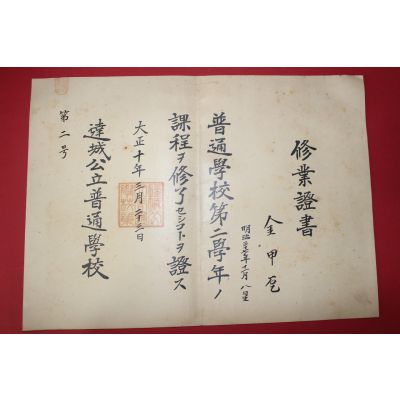 修業證書
金甲
明治
普通學校第二學年ノ
課程ヲ修了セシコトヲ證ス
大正十年三月二十二日
達城公立普通學校
第二号